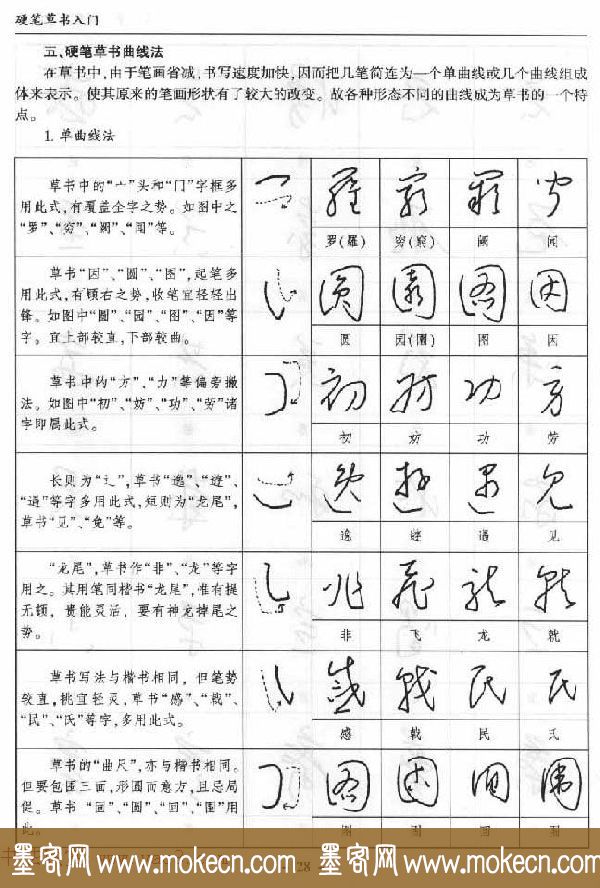 硬笔草书入门
五、硬笔草书曲线法
在草书中，由于笔画省减，书写速度加快，因而把几笔简连为一个单曲线或几个曲线组成
体来表示。使其原来的笔画形状有了较大的改变。故各种形态不同的曲线成为草书的一个特
点。
1. 单曲线法
草书中的“亠”头和“冂”字框多
用此式，有覆盖全字之势。如图中之
“罗”、“穷”、“阙”、“闻”等。
罗(羅) 穷(窮) 阙 闻
草书“因”、“圆”、“图”，起笔多
用此式，有顿右之势，收笔宜轻轻出
锋。如图中“圆”、“园”、“图”、“因”等
字。宜上部较直，下部较曲。
圆 园(園) 图 因
草书中的“方”、“力”等偏旁搬
法。如图中“初”、“妨”、“功”、“劳”诸
字即属此式。
初 妨 功 劳
长则为“辶”，草书“逸”、“遊”、
等字多用此式，短则为“龙尾”，
草书“见”、“免”等。
逸 见
“龙尾”，草书作“非”、“龙”等字
用之。其用笔同楷书“龙尾”，惟有提
无顿，贵能灵活，要有神龙掉尾之
势。
非 飞 龙 就
草书写法与楷书相同，但笔势
较直，挑宜轻灵，草书“感”、“戟”、
“民”、“氏”等字，多用此式。
感 戟 民 氏
草书的“曲尺”，亦与楷书相同。
但要包围三面，形圆而意方，且忌局
促。草书 用
此。
墨客网 www.mokecn.com 墨客网 www.mokecn.com
28